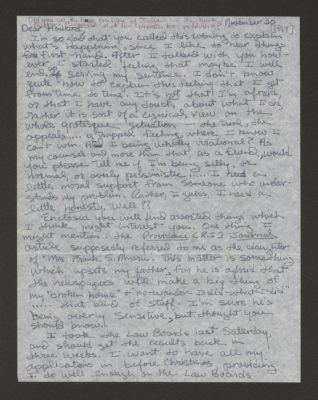 November 20
[1974]
Dear Howard,
I'm so glad that you called this evening to explain
what's happening, since I like to hear things
first hand. After I talked with you however
I started feeling that maybe I will
end up serving my sentence. I don't know
quite how to explain this feeling that I get
from time to time. It's not that I'm afraid
or that I have any doubts about what I did
rather it is sort of a cynical view on the
whole grotesque situation — the trial, the
appeals... a trapped feeling where I know I
can't win. Am I being wholly irrational? As
my counsel and more than that as a friend, would
you please tell me if I'm being silly, or
normal, or overly pessimistic..... I need a
little moral support from someone who understands
my problem. Rather, I guess I need a
little honesty. Well??
Enclosed you will find assorted things which
I think might interest you. One thing I
might mention: the Providence (R.I.) Journal
article supposedly referred to me as the daughter
of "Mrs. Frank S." This matter is something
which upsets my father, for he is afraid that
the newspapers will make a big thing of
my "broken home"
.... that kind of stuff. I'm sure he's
being overly sensitive, but thought you
should know.
I took the Law Boards last Saturday
and should get the results back in
three weeks. I want to have all my
applications in before Christmas providing
I do well enough on the Law Boards